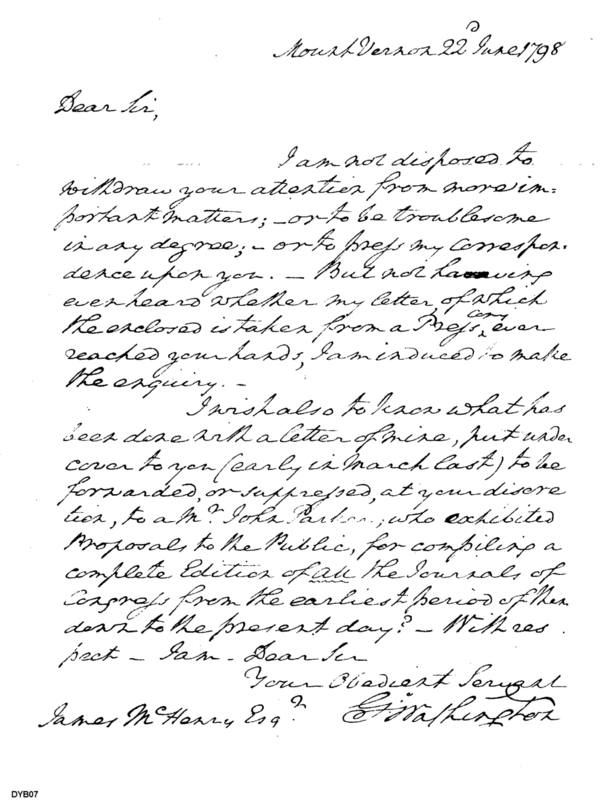 Mount Vernon 22d June 1798
Dear Sir,
I am not disposed to
withdraw your attention from more im=
portant matters; – or to be troublesome
in any degree; – or to press my correspon-
dence upon you. – But not having
even heard whether my letter, of which
the enclosed is taken from a Press Copy, ever
reached your hands, I am induced to make
the enquiry. –
I wish also to know what has
been done with a letter of mine, put under
cover to you (early in March last) to be
forwarded, or suppressed, at your discre
tion, to a Mr. John Parker; who exhibited
Proposals to the Public, for compiling a
complete Edition of all the Journals of
Congress from the earliest period of them
down to the present day? – With res
pect – I am – Dear Sir
Your Obedient Servant
James McHenry Esqr. Go: Washington
DYB07